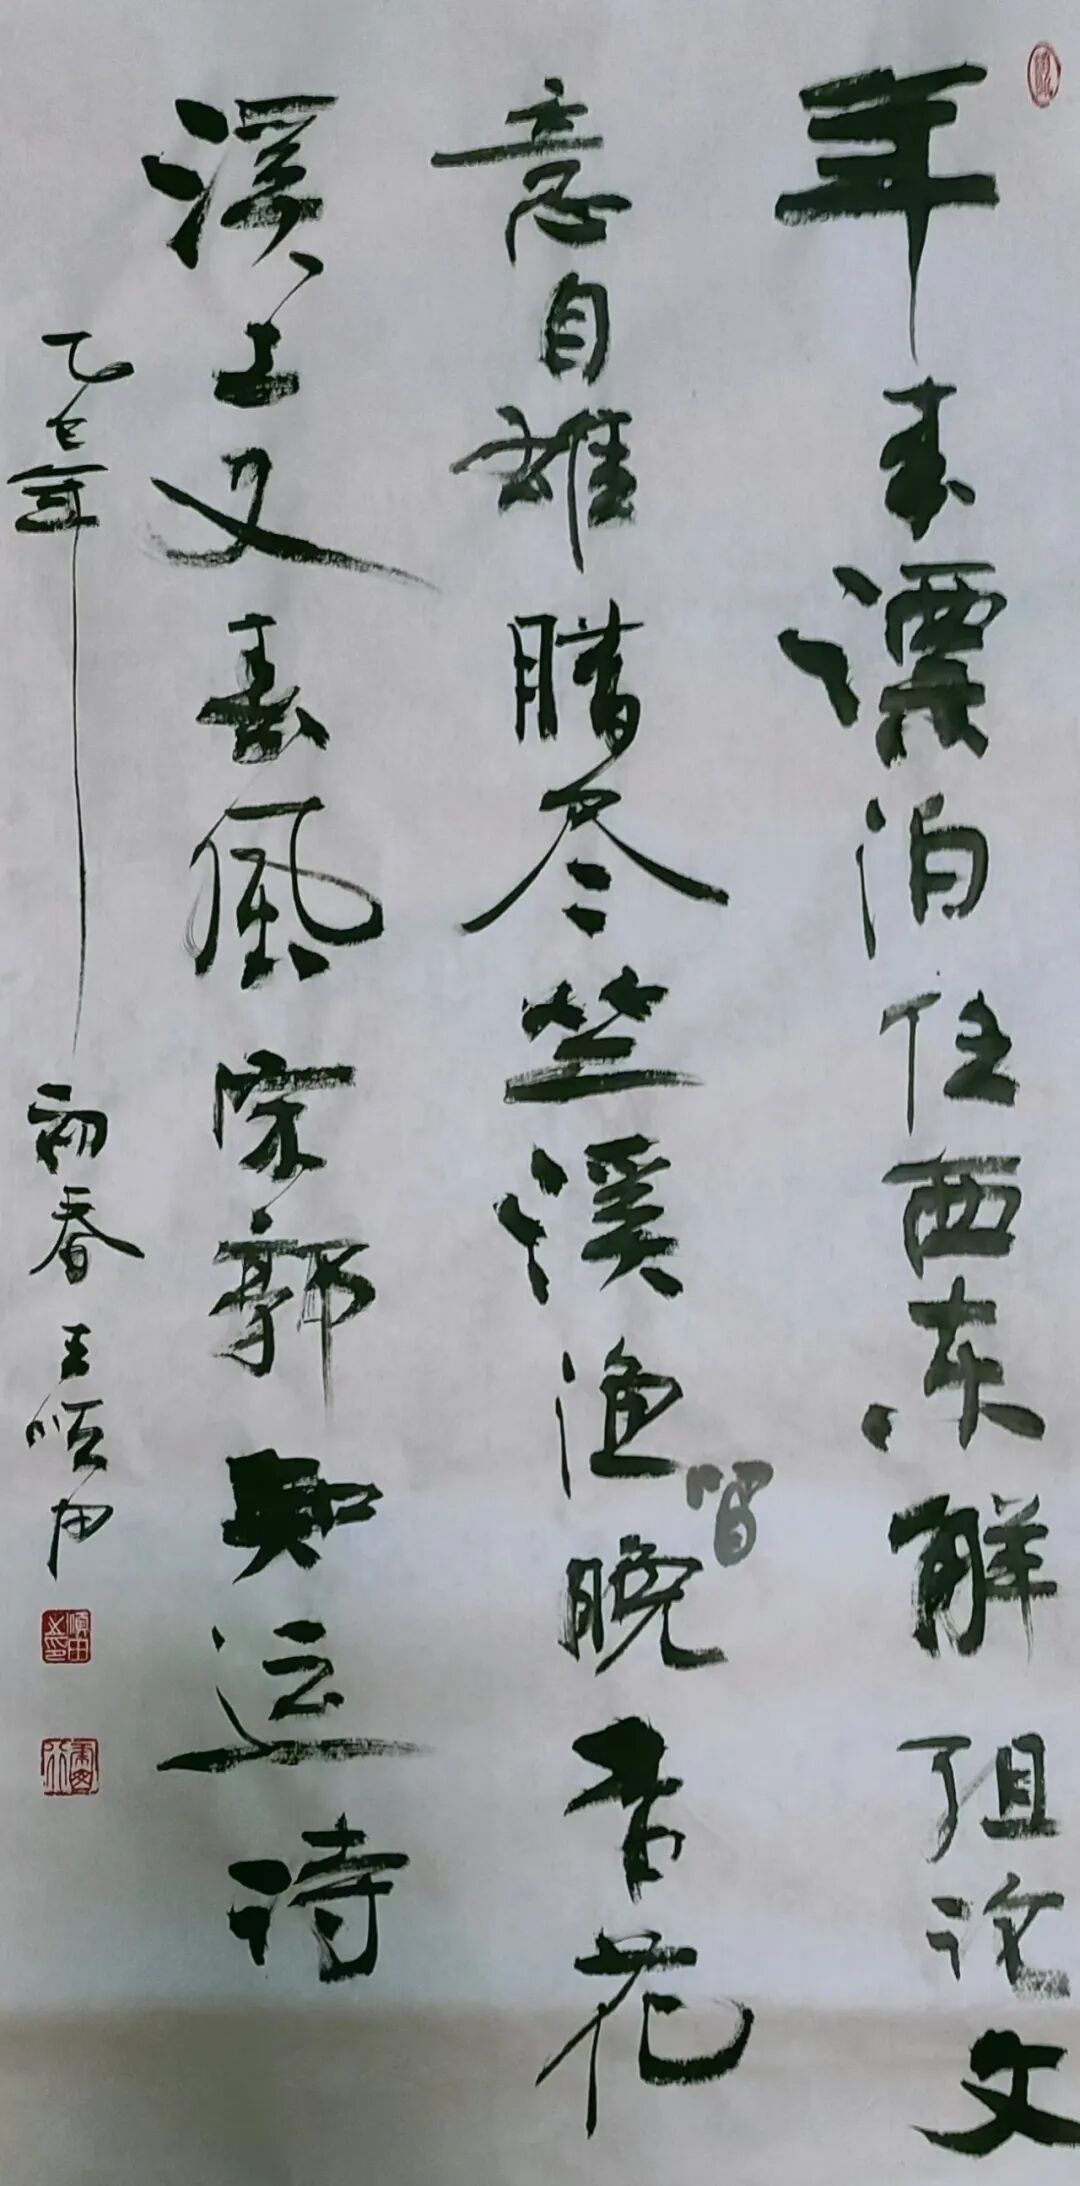 年来漂泊任西东解组论文
意自雄腊尽竺溪渔唱晚杏花
溪上又春风宋郭知运诗
乙巳年初春王顺田